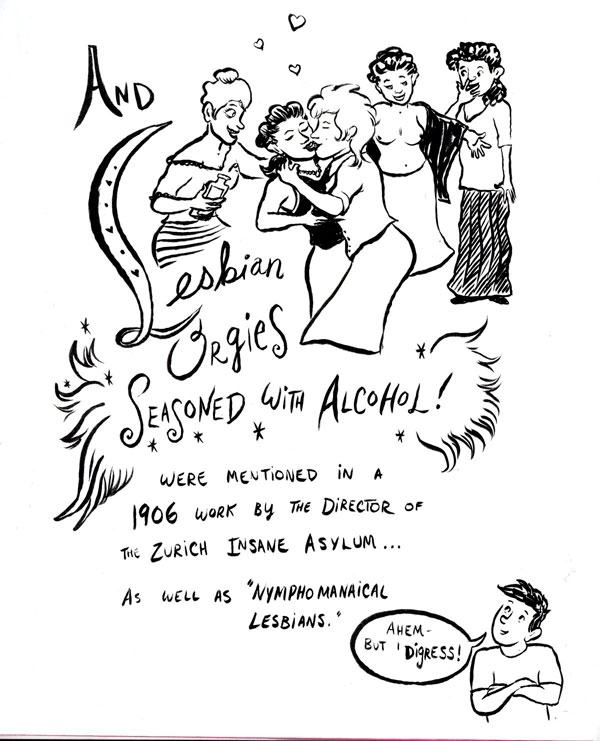 AND
Lesbian
Orgies
SEASONED WITH ALCOHOL!
WERE MENTIONED IN A
1906 WORK BY THE DIRECTOR OF
THE ZURICH INSANE ASYLUM...
AS WELL AS "NYMPHOMANAICAL
LESBIANS."
AHEM-
BUT I DIGRESS!